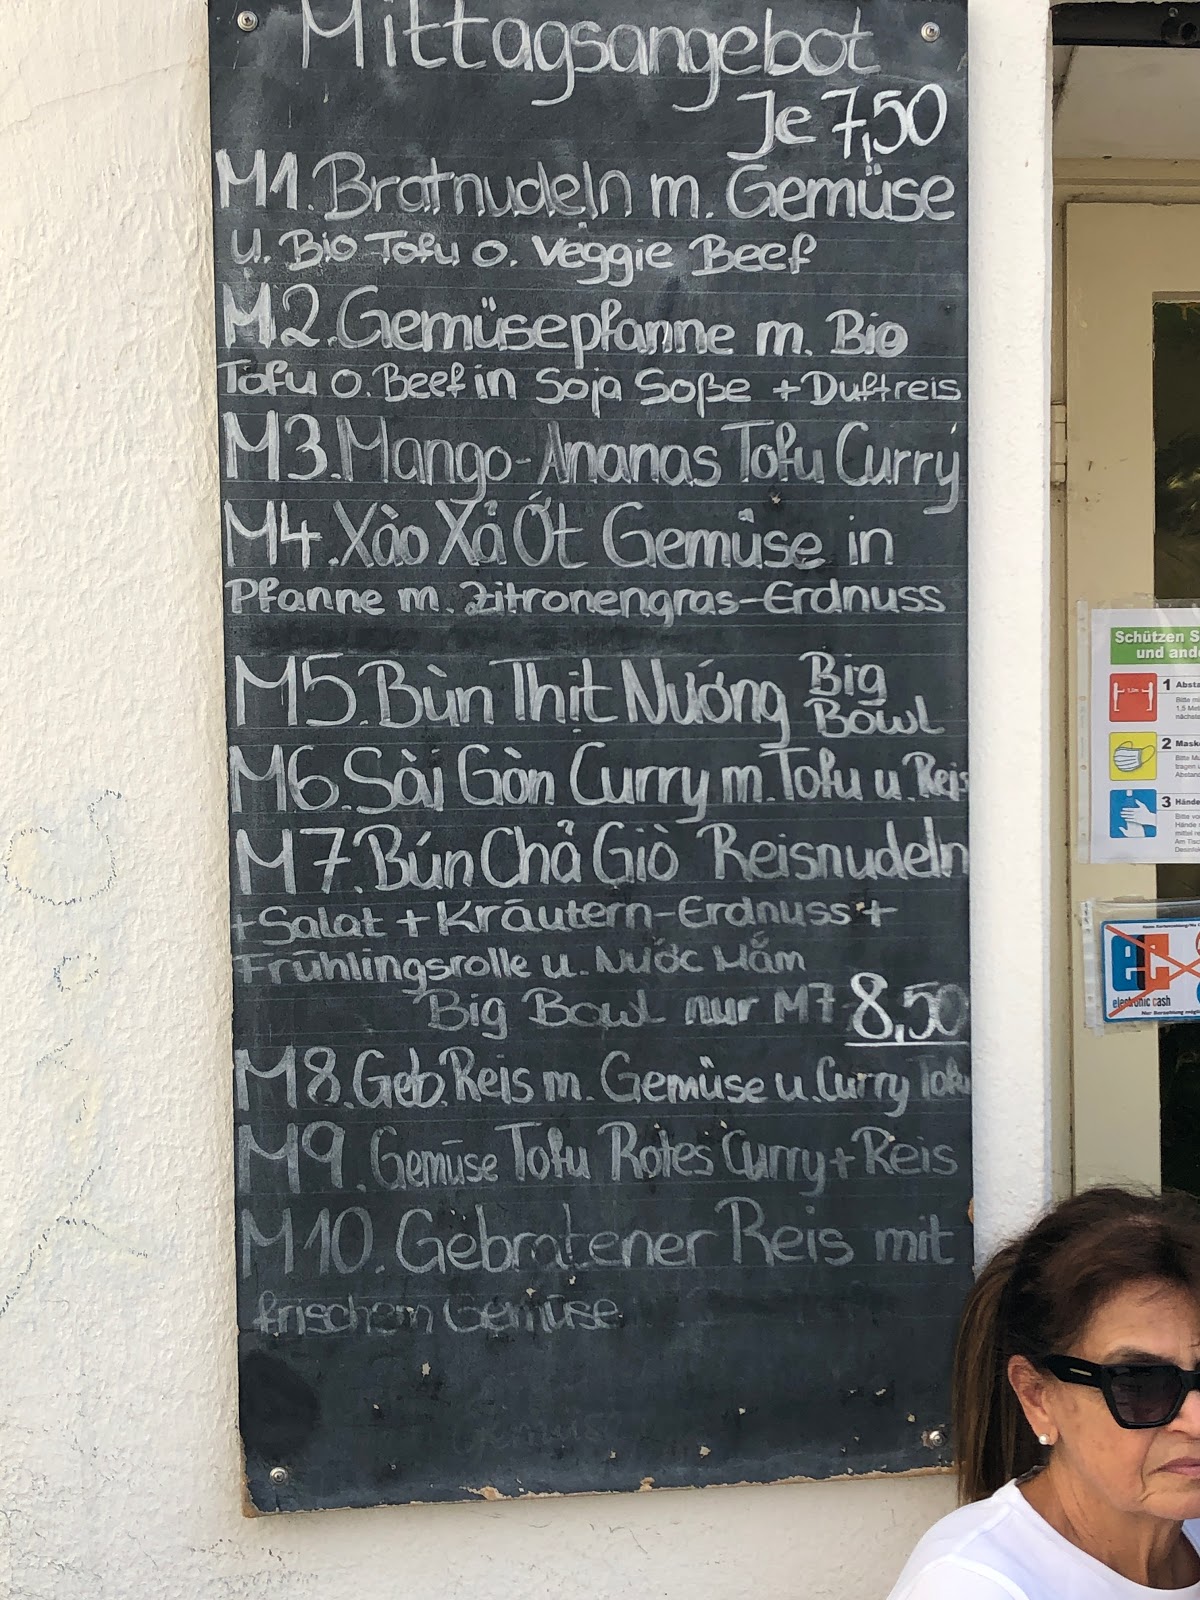 Mittagsangebot
Je 7,50
M1. Bratnudeln m. Gemüse
u. Bio Tofu o. Veggie Beef
M2. Gemüsepfanne m. Bio
Tofu o. Beef in Soja Soße + Duftreis
M3. Mango-Ananas Tofu Curry
M4. Xào Xả Ớt Gemüse in
Pfanne m. Zitronengras-Erdnuss
M5. Bùn Thịt Nướng Big Bowl
M6. Sài Gòn Curry m. Tofu u. Reis
M7. Bún Chả Giò Reisnudeln
+ Salat + Kräutern-Erdnuss +
Frühlingsrolle u. Nước Mắm
Big Bowl nur M7 8,50
M8. Geb. Reis m. Gemüse u. Curry Tofu
M9. Gemüse Tofu Rotes Curry + Reis
M10. Gebratener Reis mit
frischem Gemüse
Schützen
und
1
1,5
2
3
ec
electronic cash